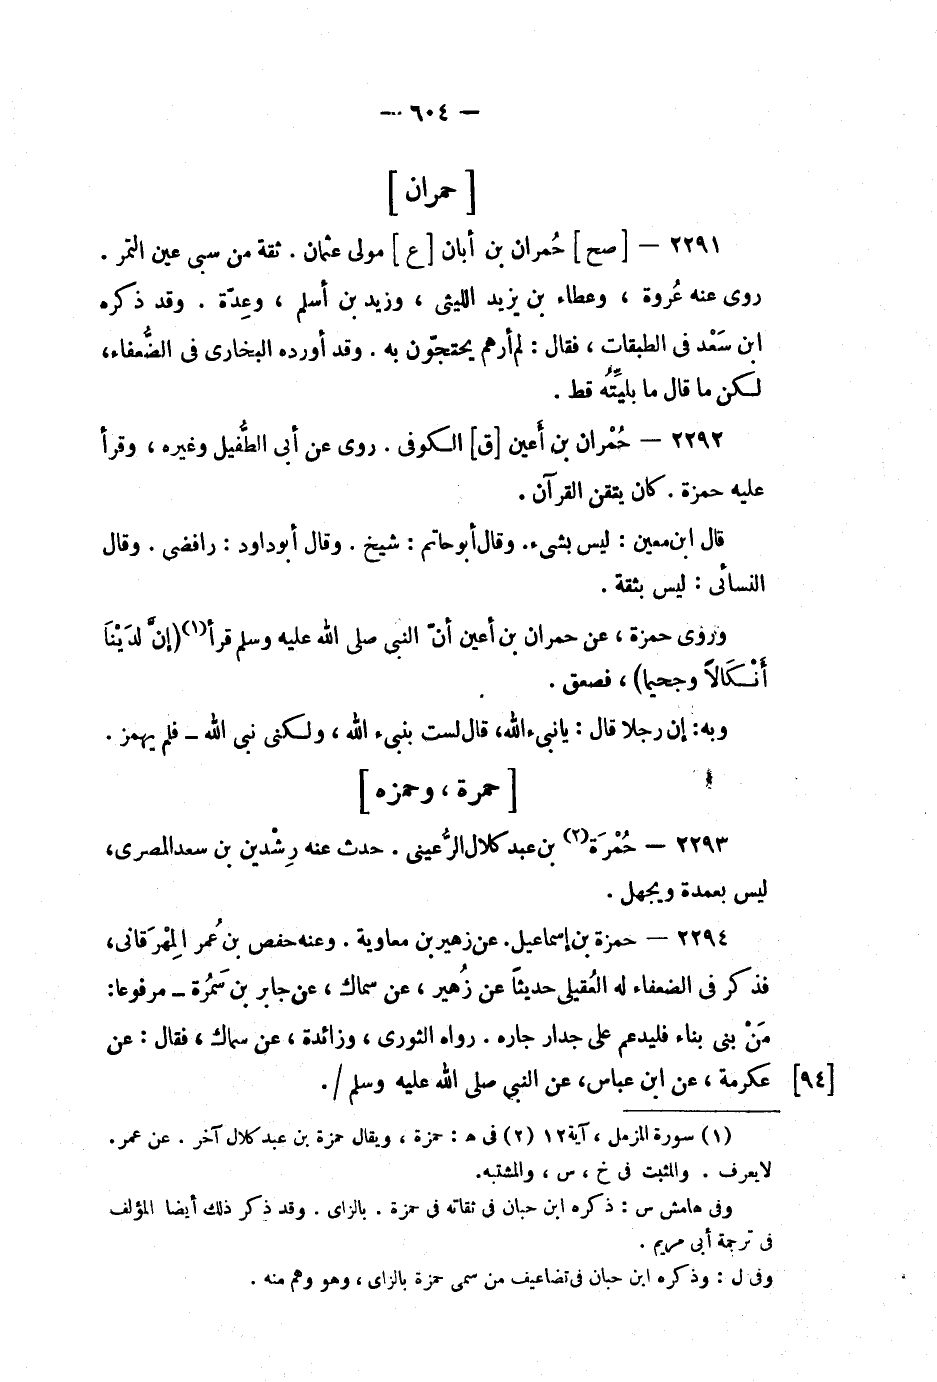 — ٦٠٤ —
[ حمران ]
٢٢٩١ — [ صح ] حُمران بن أبان [ ع ] مولى عثمان . ثقة من سبى عين التمر .
روى عنه عُروة ، وعطاء بن يزيد الليثى ، وزيد بن أسلم ، وعِدّة . وقد ذكره
ابن سَعْد فى الطبقات ، فقال : لم أرهم يحتجّون به . وقد أورده البخارى فى الضُّعفاء،
لكن ما قال ما بليّتُه قط .
٢٢٩٢ — حُمْران بن أَعين [ق] الكوفى . روى عن أبى الطُّفيل وغيره ، وقرأ
عليه حمزة . كان يتقن القرآن .
قال ابن معين : ليس بشىء. وقال أبو حاتم : شيخ . وقال أبو داود : رافضى . وقال
النسائى : ليس بثقة .
وروى حمزة ، عن حمران بن أعين أنّ النبى صلى الله عليه وسلم قرأ(١) (إنَّ لدَيْنَا
أَنْكَالاً وجحيما) ، فصعق .
وبه: إن رجلا قال : يانبىء الله، قال لست بنبىء الله ، ولكنى نبى الله ــ فلم يهمز .
[ حمرة ، وحمزه ]
٢٢٩٣ — حُمْرَة(٢) بن عبد كلال الرُّعينى . حدث عنه رِشْدين بن سعد المصرى،
ليس بعمدة ويجهل .
٢٢٩٤ — حمزة بن إسماعيل. عن زهير بن معاوية . وعنه حفص بن عُمر المِهْرَقانى،
فذكر فى الضعفاء له العُقيلى حديثاً عن زُهير ، عن سماك ، عن جابر بن سَمُرة ــ مرفوعا:
مَنْ بنى بناء فليدعم على جدار جاره . رواه الثورى ، وزائدة ، عن سماك ، فقال : عن
عكرمة ، عن ابن عباس، عن النبي صلى الله عليه وسلم / . [٩٤]
(١) سورة المزمل ، آية ١٢ (٢) فى هـ : حمزة ، ويقال حمزة بن عبد كلال آخر . عن عمر.
لايعرف . والمثبت فى خ ، س ، والمشتبه.
وفى هامش س : ذكره ابن حبان فى ثقاته فى حمزة . بالزاى . وقد ذكر ذلك أيضا المؤلف
فى ترجمة أبى مريم .
وفى ل : وذكره ابن حبان فى تضاعيف من سمى حمزة بالزاى ، وهو وهم منه .